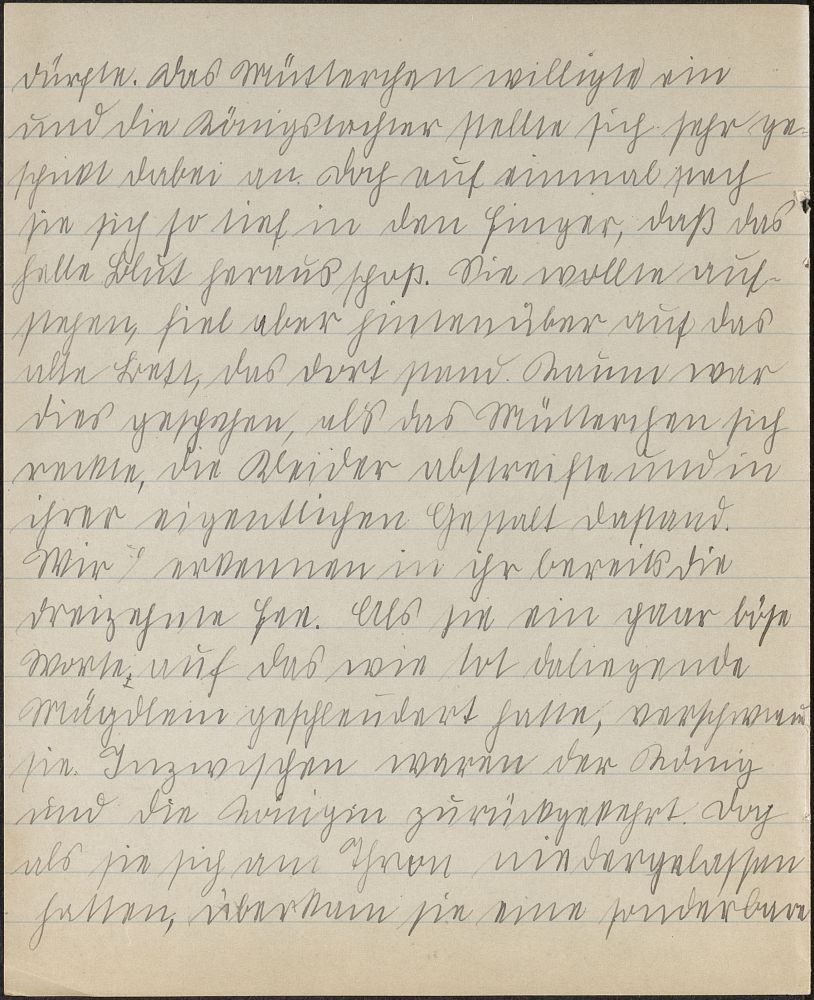 dürfte. Das Mütterchen willigte ein
und die Königstochter stellte sich sehr ge-
schickt dabei an. Doch auf einmal stach
sie sich so tief in den Finger, daß das
helle Blut heraus schoß. Sie wollte auf-
stehen, fiel aber hintenüber auf das
alte Bett, das dort stand. Kaum war
dies geschehen, als das Mütterchen sich
reckte, die Kleider abstreifte und in
ihrer eigentlichen Gestalt dastand.
Wir erkennen in ihr bereits die
dreizehnte Fee. Als sie ein paar böse
Worte auf das wie tot daliegende
Mägdlein geschleudert hatte, verschwand
sie. Inzwischen waren der König
und die Königin zurückgekehrt. Doch
als sie sich am Thron niedergelassen
hatten, überkam sie eine sonderbare